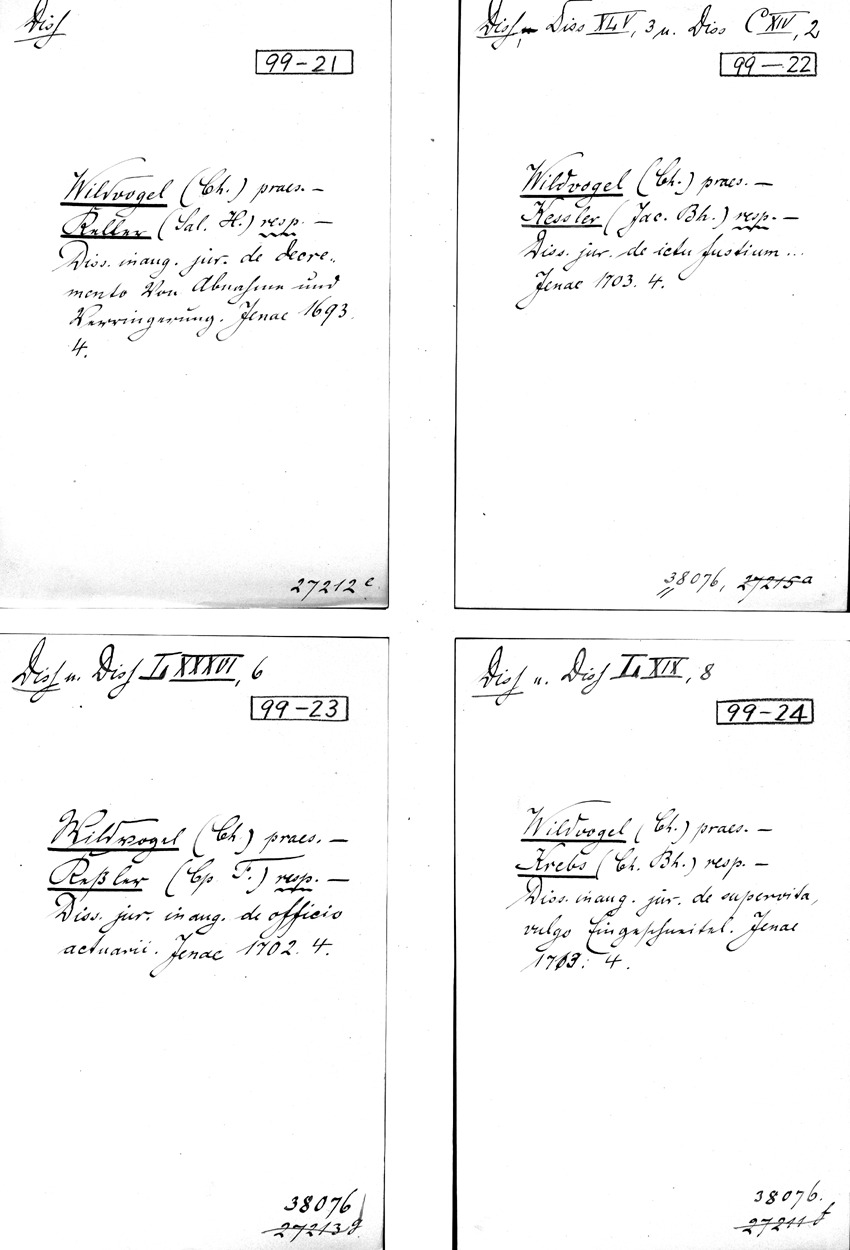 Diss
99-21
Wildvogel (Ch.) praes. —
Keller (Sal. H.) resp. —
Diss. inaug. jur. de decre-
mento Von Abnahme und
Verringerung. Jenae 1693.
4.
27212 e
Diss, Diss XLV, 3 u. Diss CXIV, 2
99-22
Wildvogel (Ch.) praes. —
Kessler (Jac. Bh.) resp. —
Diss. jur. de ictu fustium ...
Jenae 1703. 4.
38076, 27215 a
Diss u. Diss LXXXVI, 6
99-23
Wildvogel (Ch.) praes. —
Keßler (Cp. F.) resp. —
Diss. jur. inaug. de officio
actuarii. Jenae 1702. 4.
38076
27213 g
Diss u. Diss LXIX, 8
99-24
Wildvogel (Ch.) praes. —
Krebs (Ch. Bh.) resp. —
Diss. inaug. jur. de supervita,
vulgo Jenae
4.
38076.
27211 f